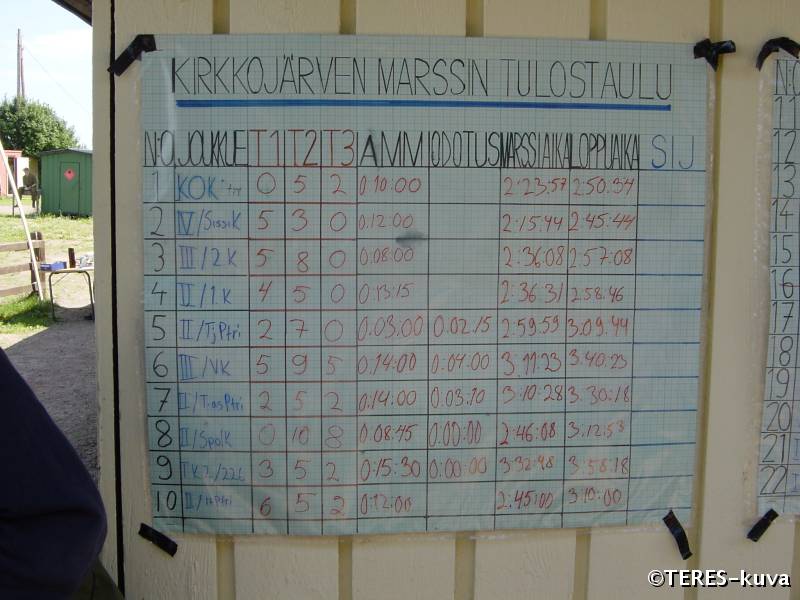 KIRKKOJÄRVEN MARSSIN TULOSTAULU
N:O JOUKKUE T1 T2 T3 AMM ODOTUS MARSSIAIKA LOPPUAIKA SIJ
1 KOK 0 5 2 0.10:00 2:23:57 2:50:34
2 IV/SissiK 5 3 0 0:12:00 2:15:44 2:45:44
3 III/2.K 5 8 0 0:08:00 2:36:08 2:57:08
4 II/1.K 4 5 0 0:13:15 2:36.31 2:58.46
5 II/TjPtri 2 7 0 0.03:00 0:02.15 2:59:59 3.09.44
6 III/VK 5 9 5 0.14:00 0:04:00 3.11:23 3.40:23
7 II/TrasPtri 2 5 2 0.14:00 0:03.10 3:10:28 3.30:18
8 II/SpolK 0 10 8 0:08:45 0:00:00 2:46:08 3:12:53
9 3 5 2 0:15:30 0:00:00 3:32:48 3:58:18
10 6 5 2 0:12:00 2:45:00 3:10:00
N:O
11
12
13
14
15
16
17
18
19
20
21
22
©TERES-kuva